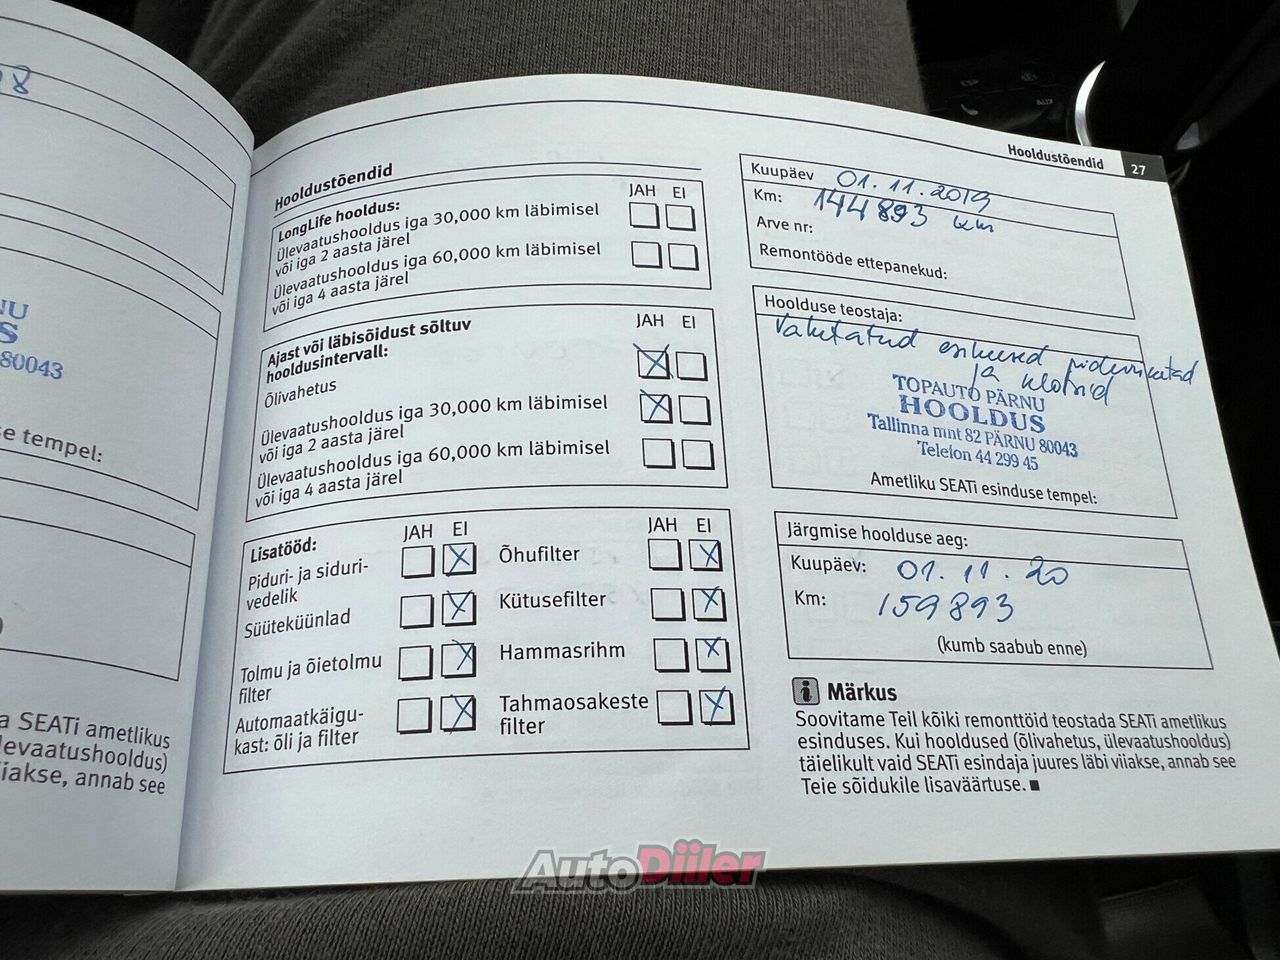 Hooldustõendid 27
8
NU
S
80043
se tempel:
a SEATi ametlikus
levaatushooldus)
iiakse, annab see
Hooldustõendid
LongLife hooldus: JAH EI
Ülevaatushooldus iga 30,000 km läbimisel
või iga 2 aasta järel
Ülevaatushooldus iga 60,000 km läbimisel
või iga 4 aasta järel
Ajast või läbisõidust sõltuv JAH EI
hooldusintervall:
Õlivahetus
Ülevaatushooldus iga 30,000 km läbimisel
või iga 2 aasta järel
Ülevaatushooldus iga 60,000 km läbimisel
või iga 4 aasta järel
Lisatööd: JAH EI JAH EI
Piduri- ja siduri-
vedelik
Süüteküünlad
Tolmu ja õietolmu
filter
Automaatkäigu-
kast: õli ja filter
Õhufilter
Kütusefilter
Hammasrihm
Tahmaosakeste
filter
Kuupäev 01.11.2019
Km: 144893 km
Arve nr:
Remontööde ettepanekud:
Hoolduse teostaja:
Vahetatud esimesed piduriketad
ja klotsid
TOPAUTO PÄRNU
HOOLDUS
Tallinna mnt 82 PÄRNU 80043
Telefon 44 299 45
Ametliku SEATi esinduse tempel:
Järgmise hoolduse aeg:
Kuupäev: 01.11.20
Km: 159893
(kumb saabub enne)
i Märkus
Soovitame Teil kõiki remonttöid teostada SEATi ametlikus
esinduses. Kui hooldused (õlivahetus, ülevaatushooldus)
täielikult vaid SEATi esindaja juures läbi viiakse, annab see
Teie sõidukile lisaväärtuse.
AUX
AutoDiiler